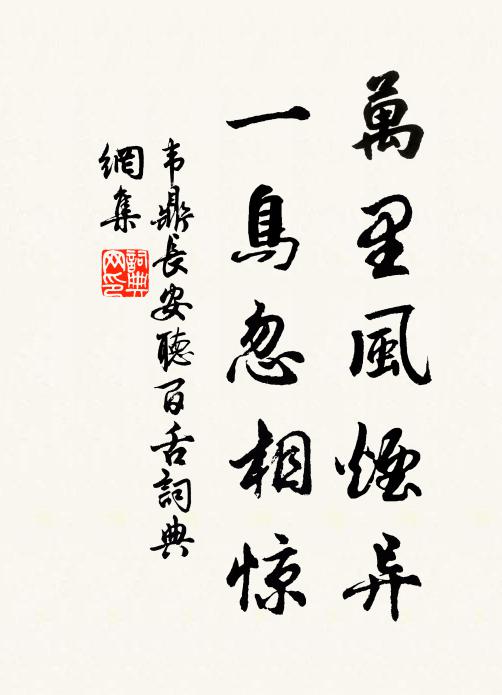 萬里風煙异
一鳥忽相惊
韦鼎長安聽百舌詞典
網集
詞典网印